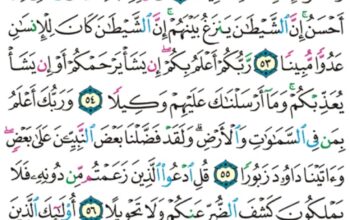 أَحْسَنُ ۚ إِنَّ ٱلشَّيْطَٰنَ يَنزَغُ بَيْنَهُمْ ۚ إِنَّ ٱلشَّيْطَٰنَ كَانَ لِلْإِنسَٰنِ
عَدُوًّا مُّبِينًا ٥٣ رَّبُّكُمْ أَعْلَمُ بِكُمْ ۖ إِن يَشَأْ يَرْحَمْكُمْ أَوْ إِن يَشَأْ
يُعَذِّبْكُمْ ۚ وَمَآ أَرْسَلْنَٰكَ عَلَيْهِمْ وَكِيلًا ٥٤ وَرَبُّكَ أَعْلَمُ
بِمَن فِى ٱلسَّمَٰوَٰتِ وَٱلْأَرْضِ ۗ وَلَقَدْ فَضَّلْنَا بَعْضَ ٱلنَّبِيِّۦنَ عَلَىٰ بَعْضٍ ۖ
وَءَاتَيْنَا دَاوُۥدَ زَبُورًا ٥٥ قُلِ ٱدْعُوا۟ ٱلَّذِينَ زَعَمْتُم مِّن دُونِهِۦ فَلَا
يَمْلِكُونَ كَشْفَ ٱلضُّرِّ عَنكُمْ وَلَا تَحْوِيلًا ٥٦ أُو۟لَٰٓئِكَ ٱلَّذِينَ